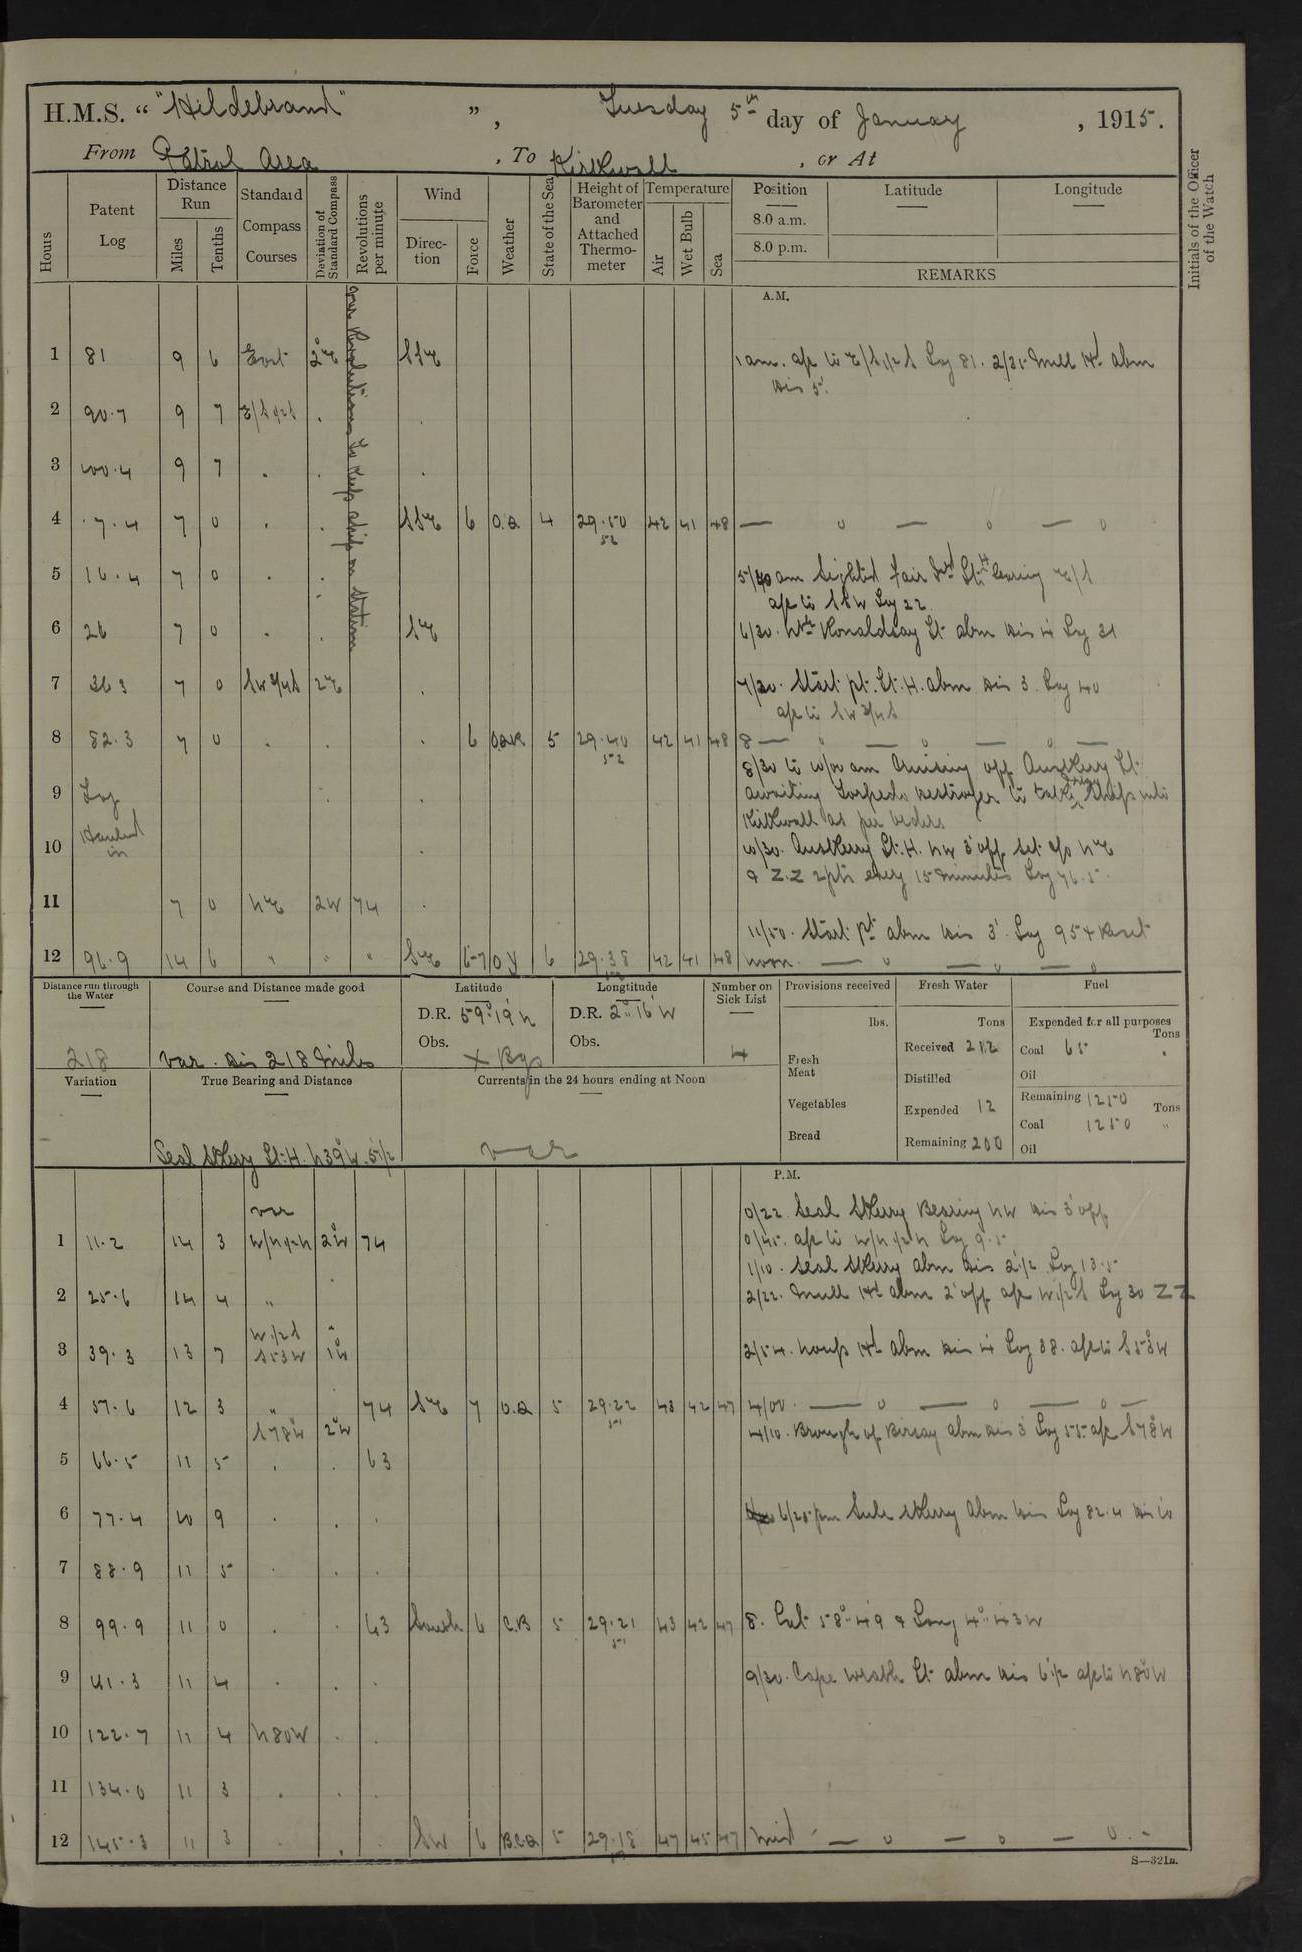 H.M.S. “ "Hildebrand" ”, Tuesday 5th day of January, 1915.
From Patrol Area, To Kirkwall, or At
Hours
Patent Log
Distance Run
Miles
Tenths
Standard Compass Courses
Deviation of Standard Compass
Revolutions per minute
Wind
Direction
Force
Weather
State of the Sea
Height of Barometer and Attached Thermometer
Temperature
Air
Wet Bulb
Sea
Position
8.0 a.m.
8.0 p.m.
Latitude
Longitude
REMARKS
Initials of the Officer of the Watch
A.M.
Var Revolutions to keep ship on station
1 81 9 6 East 2°E SSE 1 am. a/c to E/S 1/2 S Log 81. 2/35 Mull Hd abm
dis 5'.
2 90.7 9 7 E/S 1/2 S .
3 100.4 9 7 . . .
4 .7.4 7 0 . . SSE 6 O.Q 4 29.50 42 41 48
52
5 16.4 7 0 . . 5/40 am Sighted Fair Isd Lt H bearing E/S
a/c to SSW Log 22
6 26 7 0 . . SE 6/30. Nth Ronaldsay Lt abm dis 4 Log 31
7 36 3 7 0 SW 3/4 S 2°E . 7/30. Start pt. Lt. H. abm dis 3. Log 40
a/c to SW 3/4 S
8 82.3 7 0 . . . 6 5 29.40 42 41 48 8
52
8/30 to 10/00 am Cruising off Auskerry Lt
9 Log . awaiting Torpedo destroyer to take ships into
Hauled Kirkwall as per orders
10 in . 10/30. Auskerry Lt. H. NW 3' off set c/o NE
& Z.Z 2pts every 15 minutes Log 76.5.
11 7 0 NE 2W 74 .
11/50. Start pt abm dis 3'. Log 95.4
12 96.9 14 6 " " " SE 6-7 6 29.38 42 41 48 noon.
Distance run through the Water
218
Course and Distance made good
var. dis 218 miles
Latitude
D.R. 59° 19' N
Obs.
Longtitude
D.R. 2° 16' W
Obs.
X Bgs
Number on Sick List
4
Provisions received
lbs.
Fresh Meat
Vegetables
Bread
Fresh Water
Tons
Received 212
Distilled
Expended 12
Remaining 200
Fuel
Expended for all purposes
Tons
Coal 65
Oil
Remaining 1250
Tons
Coal 1250 "
Oil
Variation
True Bearing and Distance
Seal Skerry Lt. H. N39°W. 5 1/2
Currents in the 24 hours ending at Noon
var
P.M.
var 0/22 Seal Skerry Bearing NW dis 3' off
1 11.2 14 3 W/N 1/2 N 2°W 74 0/45. a/c to W/N 1/2 N Log 9.5
1/10. Seal Skerry abm dis 2 1/2 Log 13.5
2 25.6 14 4 " 2/22. Mull Hd abm 2' off a/c W 1/2 S Log 30 ZZ
W 1/2 S "
3 39.3 13 7 S53W 1°W 2/54. Noup Hd abm dis 4 Log 38. a/c to S53°W
4 57.6 12 3 " . 74 SE 7 O.Q 5 29.22 43 42 47 4/00.
51
S78°W 2°W 4/10. Brough of Birsay abm dis 3' Log 55 a/c S78°W
5 66.5 11 5 . . 63
6 77.4 10 9 . . . 6/25 pm Sule Skerry abm dis Log 82.4 dis 10
7 88.9 11 5 . . .
8 99.9 11 0 . . 63 South 6 C.B 5 29.21 43 42 47 8. Lat 58° 49 & Long 4° 43 W
51
9 111.3 11 4 . . . 9/30. Cape Wrath Lt abm dis 6 1/2 a/c to N80°W
10 122.7 11 4 N80W . .
11 134.0 11 3 . . .
12 145.3 11 3 . . . SW 6 B.C.Q 5 29.18 47 45 47 Mid
S—321a.